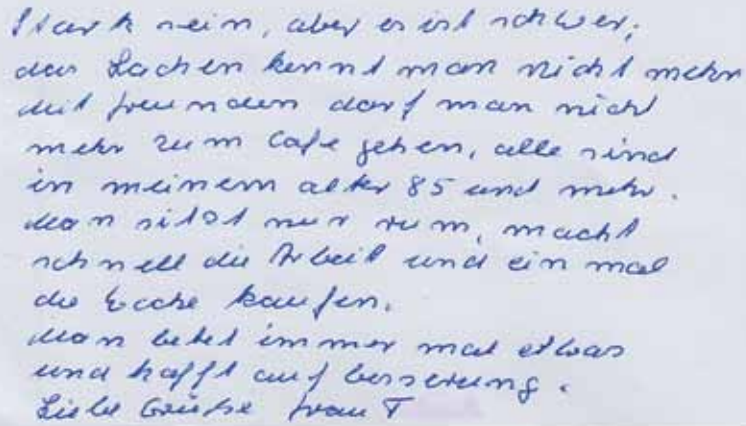 Stark sein, aber es ist schwer,
das Lachen kennt man nicht mehr
Mit freunden darf man nicht
mehr zum Cafe gehen, alle sind
in meinem alter 85 und mehr.
Man sitzt nur rum, macht
schnell die Arbeit und ein mal
die Woche kaufen.
Man betet immer mal etwas
und hofft auf besserung.
Liebe Grüße frau T